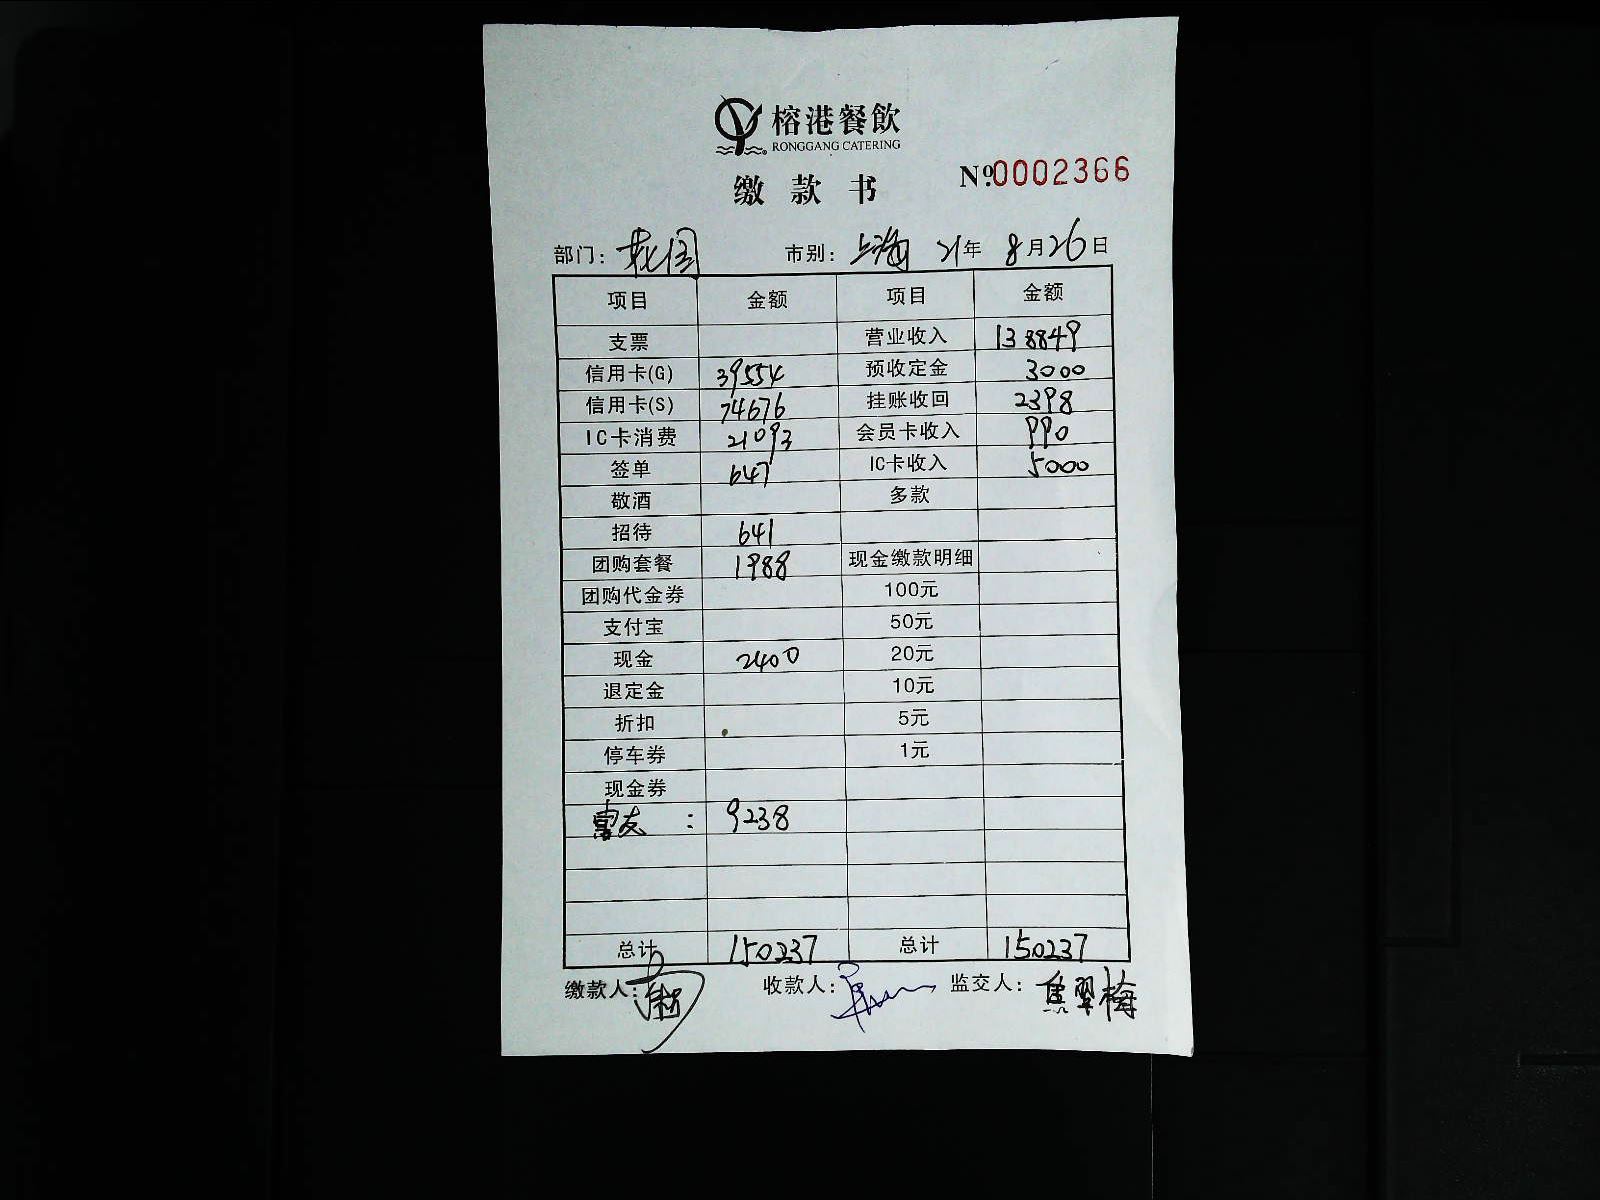 榕港餐飲
RONGGANG CATERING
缴款书 №0002366
部门: 市别: 上海 21年 8月26日
项目 金额 项目 金额
支票 营业收入 138849
信用卡(G) 39554 预收定金 3000
信用卡(S) 74676 挂账收回 2398
IC卡消费 21093 会员卡收入 990
签单 647 IC卡收入 5000
敬酒 多款
招待 641
团购套餐 1988 现金缴款明细
团购代金券 100元
支付宝 50元
现金 2400 20元
退定金 10元
折扣 5元
停车券 1元
现金券
: 9238
总计 150237 总计 150237
缴款人: 收款人: 监交人: